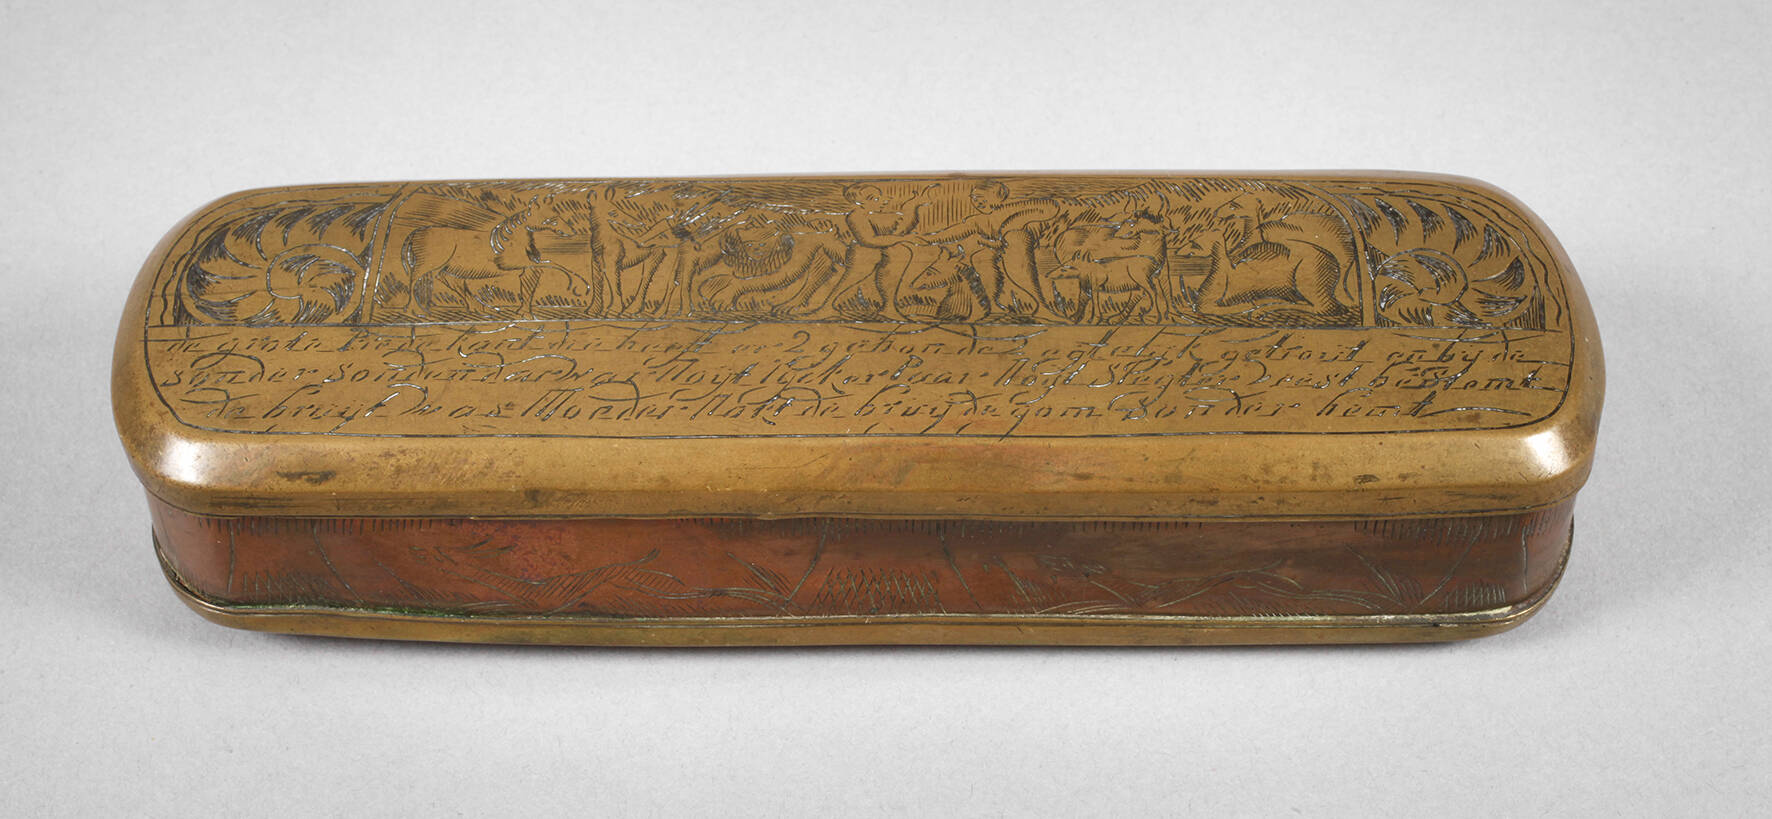 de groote die heeft er 2 gebonden egtelijk getrout en bijde
sonder sonden daer was Noijt rijcker Paar Noijt Slegter feest bestemt
de bruijt was Moeder Nakt de bruijdegom sonder hemt